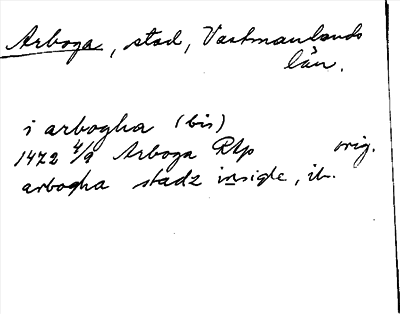 Arboga, stad, Västmanlands
län.
i arbogha (bis)
1472 4/9 Arboga Rtp orig.
arbogha stadz insigle, ib.